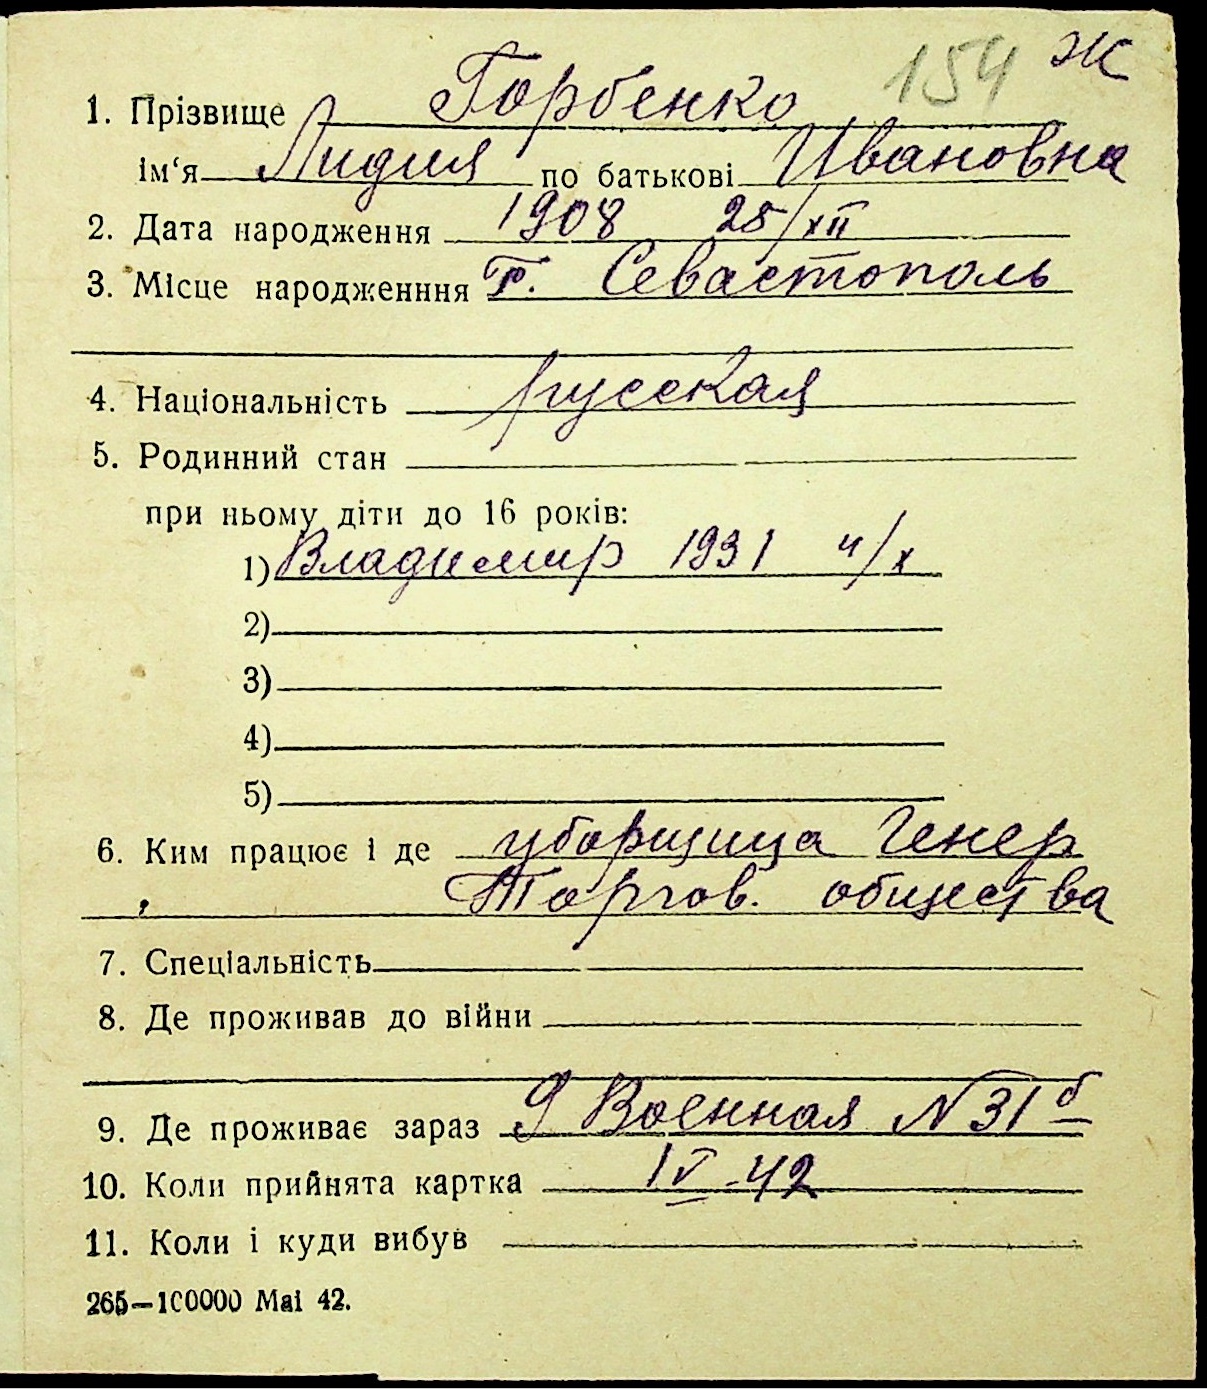 154 Ж
1. Прізвище Горбенко
ім‘я Лидия по батькові Ивановна
2. Дата народження 1908 25/XII
3. Місце народженння г. Севастополь
4. Національність русская
5. Родинний стан
при ньому діти до 16 років:
1) Владимир 1931 4/X
2)
3)
4)
5)
6. Ким працює і де уборщица Генер
Торгов. общества
7. Спеціальність
8. Де проживав до війни
9. Де проживає зараз 9 Военная № 31 б
10. Коли прийнята картка IV-42
11. Коли і куди вибув
265—100000 Mai 42.